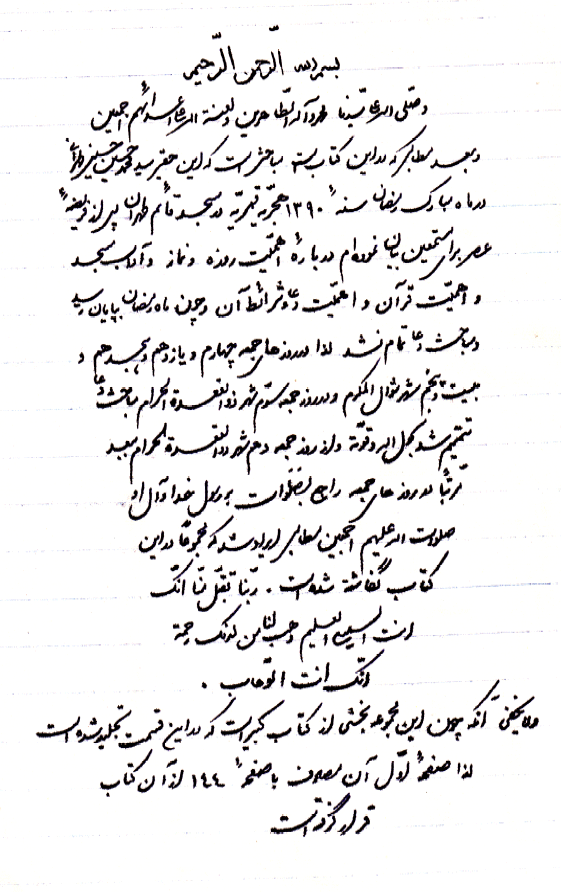 بسم الله الرّحمن الرّحیم
وصلّی الله علی سیّدنا محمد و آله الطّاهرین و لعنة الله علی أعدائهم اجمعین
و بعد مطالبی که در این کتاب است مباحثی است که این حقیر سید محمد حسین حسینی طهرانی
در ماه مبارک رمضان سنهٔ ۱۳۹۰ هجریّه قمریّه در مسجد قائم طهران پس از فریضهٔ
عصر برای مستمعین بیان نموده‌ام دربارهٔ اهمّیّت روزه و نماز و آداب مسجد
و اهمیّت قرآن و اهمیّت دعا و شرائط آن و چون ماه رمضان بپایان رسید
و مباحث دعا تمام نشد لذا در روزهای جمعه چهارم و یازدهم و هجدهم و
بیست و پنجم شهر شوال المکرم و در روز جمعه سوّم شهر ذوالقعدة الحرام مباحث دعا
تتمیم شد بحول الله و قوّته و از روز جمعه دهم شهر ذوالقعدة الحرام ببعد
مرتّباً در روزهای جمعه راجع بصلوات بر رسول خدا و آل او
صلوات الله علیهم اجمعین مطالبی ایراد شد که مجموعاً در این
کتاب نگاشته شده است . ربّنا تقبّل منّا انّک
انت السمیع العلیم و هب لنا من لدنک رحمة
انّک انت الوّهاب .
ولا یخفی آنکه چون این مجموعه بخشی از کتاب کبیر است که در این قسمت تجلید شده است
لذا صفحهٔ اوّل آن مصادف با صفحهٔ ١٤٤ از آن کتاب
قرار گرفته است